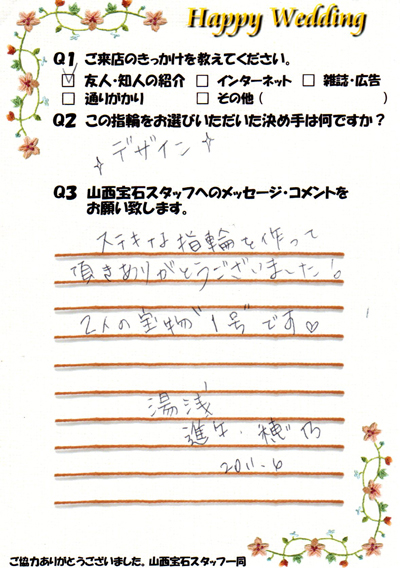 Happy Wedding
Q1 ご来店のきっかけを教えてください。
☑ 友人・知人の紹介 □ インターネット □ 雑誌・広告
□ 通りがかり □ その他( )
Q2 この指輪をお選びいただいた決め手は何ですか?
✧デザイン✧
Q3 山西宝石スタッフへのメッセージ・コメントを
お願い致します。
ステキな指輪を作って
頂きありがとうございました!
2人の宝物"1号"です♡
湯浅
進午・穂乃
2011.6
ご協力ありがとうございました。山西宝石スタッフ一同